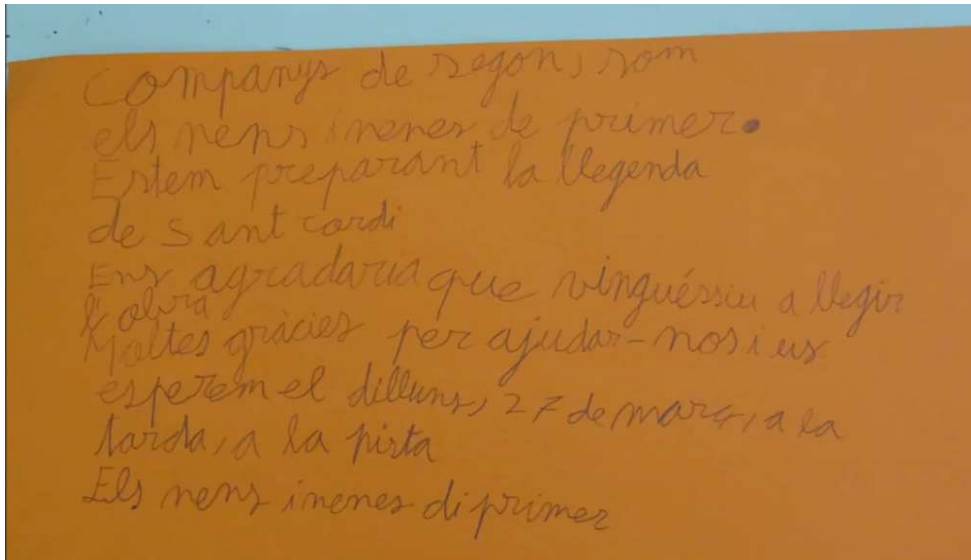 Companys de segon, som
els nens i nenes de primer.
Estem preparant la llegenda
de Sant cordi
Ens agradaria que vinguéssiu a llegir
l'obra
Moltes gràcies per ajudar-nos i us
esperem el dilluns, 27 de març, a la
tarda, a la pista
Els nens i nenes di primer